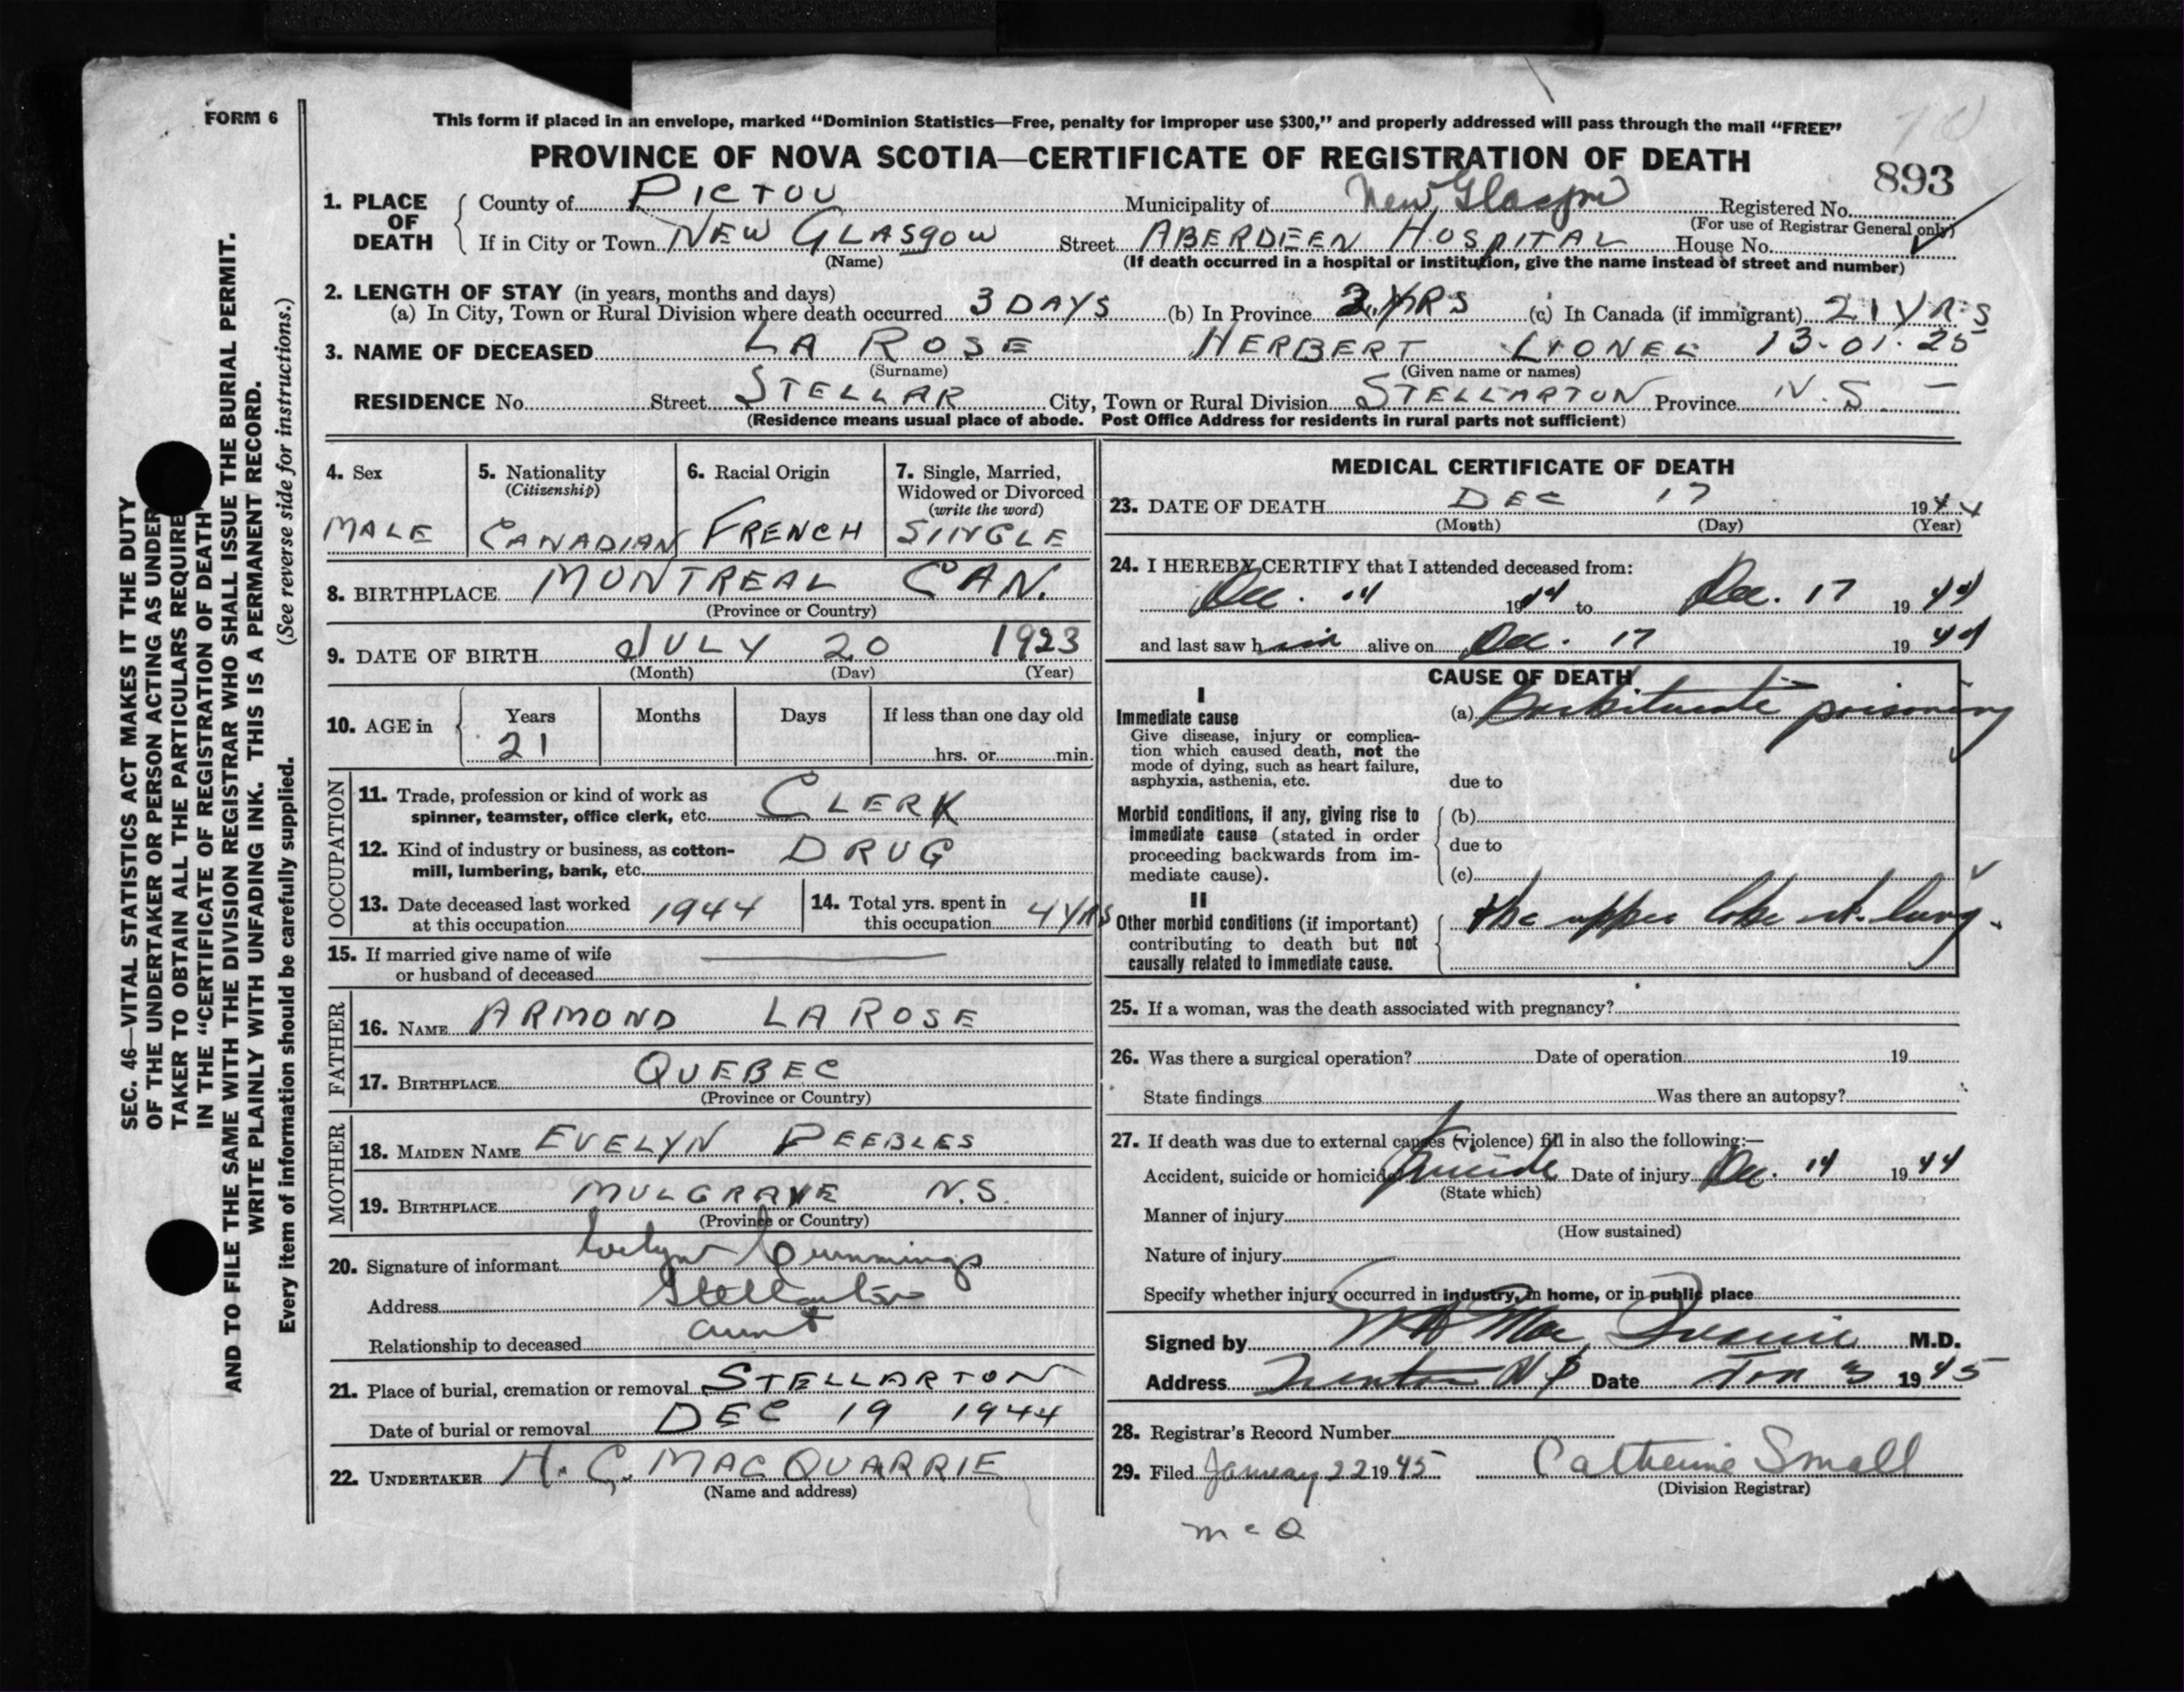 FORM 6
This form if placed in an envelope, marked “Dominion Statistics—Free, penalty for improper use $300,” and properly addressed will pass through the mail “FREE”
PROVINCE OF NOVA SCOTIA—CERTIFICATE OF REGISTRATION OF DEATH
893
1. PLACE OF DEATH
County of PICTOU Municipality of New Glasgow Registered No.
(For use of Registrar General only)
If in City or Town NEW GLASGOW Street ABERDEEN HOSPITAL House No.
(Name) (If death occurred in a hospital or institution, give the name instead of street and number)
2. LENGTH OF STAY (in years, months and days)
(a) In City, Town or Rural Division where death occurred 3 DAYS (b) In Province YRS (c) In Canada (if immigrant) 21 YRS
3. NAME OF DECEASED LA ROSE HERBERT LIONEL 13-01-25
(Surname) (Given name or names)
RESIDENCE No. Street STELLAR City, Town or Rural Division STELLARTON Province N.S.
(Residence means usual place of abode. Post Office Address for residents in rural parts not sufficient)
4. Sex
MALE
5. Nationality
(Citizenship)
CANADIAN
6. Racial Origin
FRENCH
7. Single, Married,
Widowed or Divorced
(write the word)
SINGLE
8. BIRTHPLACE MONTREAL CAN.
(Province or Country)
9. DATE OF BIRTH JULY 20 1923
(Month) (Day) (Year)
10. AGE in Years Months Days If less than one day old
21 hrs. or min.
OCCUPATION
11. Trade, profession or kind of work as
spinner, teamster, office clerk, etc. CLERK
12. Kind of industry or business, as cotton-
mill, lumbering, bank, etc. DRUG
13. Date deceased last worked
at this occupation 1944
14. Total yrs. spent in
this occupation 4 YRS
15. If married give name of wife
or husband of deceased
FATHER
16. NAME ARMOND LA ROSE
17. BIRTHPLACE QUEBEC
(Province or Country)
MOTHER
18. MAIDEN NAME EVELYN PEEBLES
19. BIRTHPLACE MULGRAVE N.S.
(Province or Country)
20. Signature of informant Evelyn Cummings
Address Stellarton
Relationship to deceased aunt
21. Place of burial, cremation or removal STELLARTON
Date of burial or removal DEC 19 1944
22. UNDERTAKER H. C. MACQUARRIE
(Name and address)
MEDICAL CERTIFICATE OF DEATH
23. DATE OF DEATH DEC 17 1944
(Month) (Day) (Year)
24. I HEREBY CERTIFY that I attended deceased from:
Dec. 14 1944 to Dec. 17 1944
and last saw h im alive on Dec. 17 1944
CAUSE OF DEATH
I
Immediate cause
Give disease, injury or complica-
tion which caused death, not the
mode of dying, such as heart failure,
asphyxia, asthenia, etc.
(a) Barbiturate poisoning
due to
Morbid conditions, if any, giving rise to
immediate cause (stated in order
proceeding backwards from im-
mediate cause).
(b)
due to
(c)
II
Other morbid conditions (if important)
contributing to death but not
causally related to immediate cause.
upper lobe rt. lung.
25. If a woman, was the death associated with pregnancy?
26. Was there a surgical operation? Date of operation 19
State findings Was there an autopsy?
27. If death was due to external causes (violence) fill in also the following:—
Accident, suicide or homicide Suicide Date of injury Dec. 14 1944
(State which)
Manner of injury
(How sustained)
Nature of injury
Specify whether injury occurred in industry, in home, or in public place
Signed by M.D.
Address Trenton N S Date Jan 3 1945
28. Registrar's Record Number
29. Filed January 22 1945 Catherine Small
(Division Registrar)
McQ
SEC. 46—VITAL STATISTICS ACT MAKES IT THE DUTY
OF THE UNDERTAKER OR PERSON ACTING AS UNDER
TAKER TO OBTAIN ALL THE PARTICULARS REQUIRE
IN THE “CERTIFICATE OF REGISTRATION OF DEATH”
AND TO FILE THE SAME WITH THE DIVISION REGISTRAR WHO SHALL ISSUE THE BURIAL PERMIT.
WRITE PLAINLY WITH UNFADING INK. THIS IS A PERMANENT RECORD.
Every item of information should be carefully supplied. (See reverse side for instructions.)